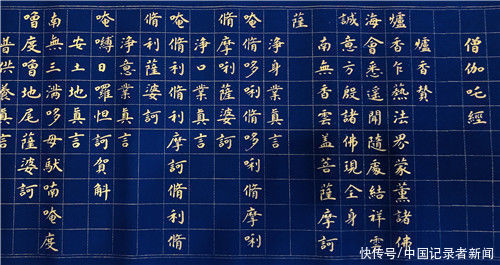 僧伽吒經
爐香贊
爐香乍爇法界蒙薰諸佛
海會悉遙聞隨處結祥雲
誠意方殷諸佛現全身
南無香雲蓋菩薩摩訶
薩
淨身業真言
唵脩哆唎脩哆唎脩摩唎
脩摩唎薩婆訶
淨口業真言
唵脩利脩利摩訶脩利脩
脩利薩婆訶
淨意業真言
唵嚩日囉怛訶賀斛
安土地真言
南無三滿哆母馱喃唵度
嚕度嚕地尾薩婆訶
普供養真言
快传号/中国记者新闻